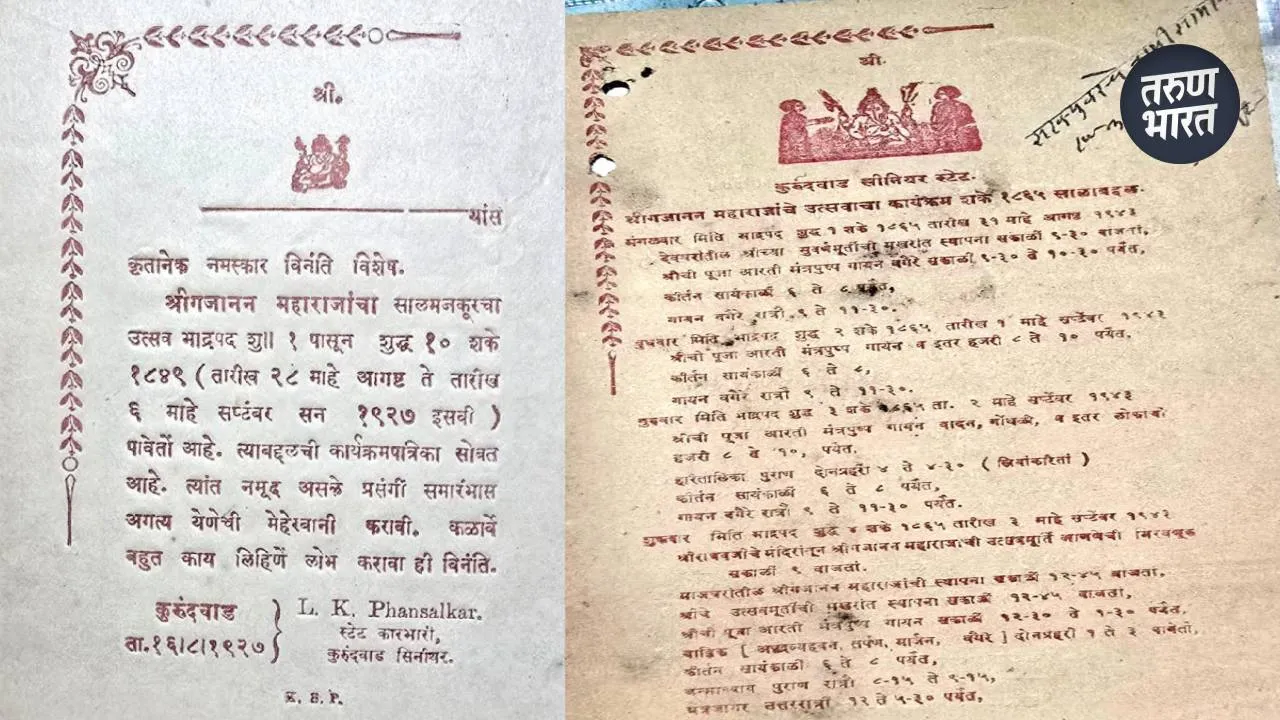 श्री.
यांस
कृतानेक नमस्कार विनंति विशेष.
श्रीगजानन महाराजांचा सालमजकूरचा
उत्सव भाद्रपद शु॥ १ पासून शुद्ध १० शके
१८४९ ( तारीख २८ माहे आगष्ट ते तारीख
६ माहे सप्टंबर सन १९२७ इसवी )
पावेतों आहे. त्याबद्दलची कार्यक्रमपत्रिका सोबत
आहे. त्यांत नमूद असले प्रसंगीं समारंभास
अगत्य येणेची मेहेरबानी करावी. कळावें
बहुत काय लिहिणें लोभ करावा ही विनंति.
कुरुंदवाड
ता.१६/८/१९२७
L. K. Phansalkar.
स्टेट कारभारी,
कुरुंदवाड सिनियर.
K. S. P.
श्री.
कुरुंदवाड सीनियर स्टेट.
श्रीगजानन महाराजांचे उत्सवाचा कार्यक्रम शके १८६५ सालाबद्दल.
मंगळवार मिति भाद्रपद शुद्ध १ शके १८६५ तारीख ३१ माहे आगष्ट १९४३
देवघरांतील श्रीच्या सुवर्णमूर्तीची मखरांत स्थापना सकाळीं ९-३० वाजतां,
श्रीची पूजा आरती मंत्रपुष्प गायन वगैरे सकाळीं ९-३० ते १०-३० पर्यंत,
कीर्तन सायंकाळीं ६ ते ८ पर्यंत,
गायन वगैरे रात्रौ ९ ते ११-३०.
बुधवार मिति भाद्रपद शुद्ध २ शके १८६५ तारीख १ माहे सप्टेंबर १९४३
श्रीची पूजा आरती मंत्रपुष्प गायन व इतर हजरी ८ ते १० पर्यंत,
कीर्तन सायंकाळीं ६ ते ८,
गायन वगैरे रात्रौ ९ ते ११-३०.
मिति भाद्रपद शुद्ध ३ शके १८६५ ता. २ माहे सप्टेंबर १९४३
श्रीची पूजा आरती मंत्रपुष्प गायन वादन, गोंधळी, व इतर लोकांची
हजरी ८ ते १०, पर्यंत.
हरितालिका पुराण दोनप्रहरीं ४ ते ४-३० ( स्त्रियांकरितां )
कीर्तन सायंकाळीं ६ ते ८ पर्यंत,
गायन वगैरे रात्रौ ९ ते ११-३० पर्यंत.
शुक्रवार मिति भाद्रपद शुद्ध ४ शके १८६५ तारीख ३ माहे सप्टेंबर १९४३
मंदिरांतून श्रीगजानन महाराजांची उत्सवमूर्ति आणणेची मिरवणूक
सकाळीं ९ वाजतां.
श्रीगजानन महाराजांची स्थापना सकाळीं १२-४५ वाजतां,
श्रीचे उत्सवमूर्तीची मखरांत स्थापना सकाळीं १२-४५ वाजतां,
श्रीची पूजा आरती मंत्रपुष्प गायन सकाळीं १२-३० ते १-३० पर्यंत.
तर्पण, मार्जन, वगैरे ] दोनप्रहरीं १ ते ३ पावेतों,
कीर्तन सायंकाळीं ६ ते ८ पर्यंत,
पुराण रात्रौ ८-१५ ते ९-१५,
मंत्रजागर उत्तररात्रीं १२ ते ५-३० पर्यंत,
तरुण
भारत